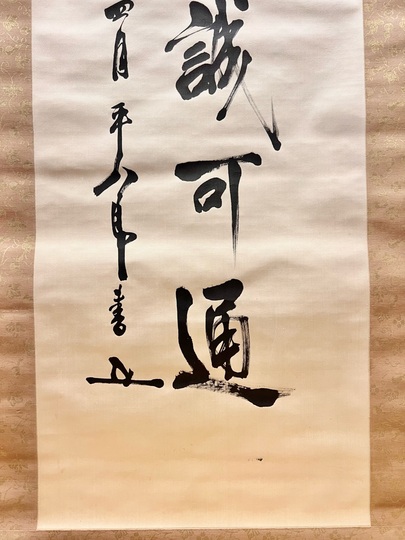 誠可通
四月 平八郎書之